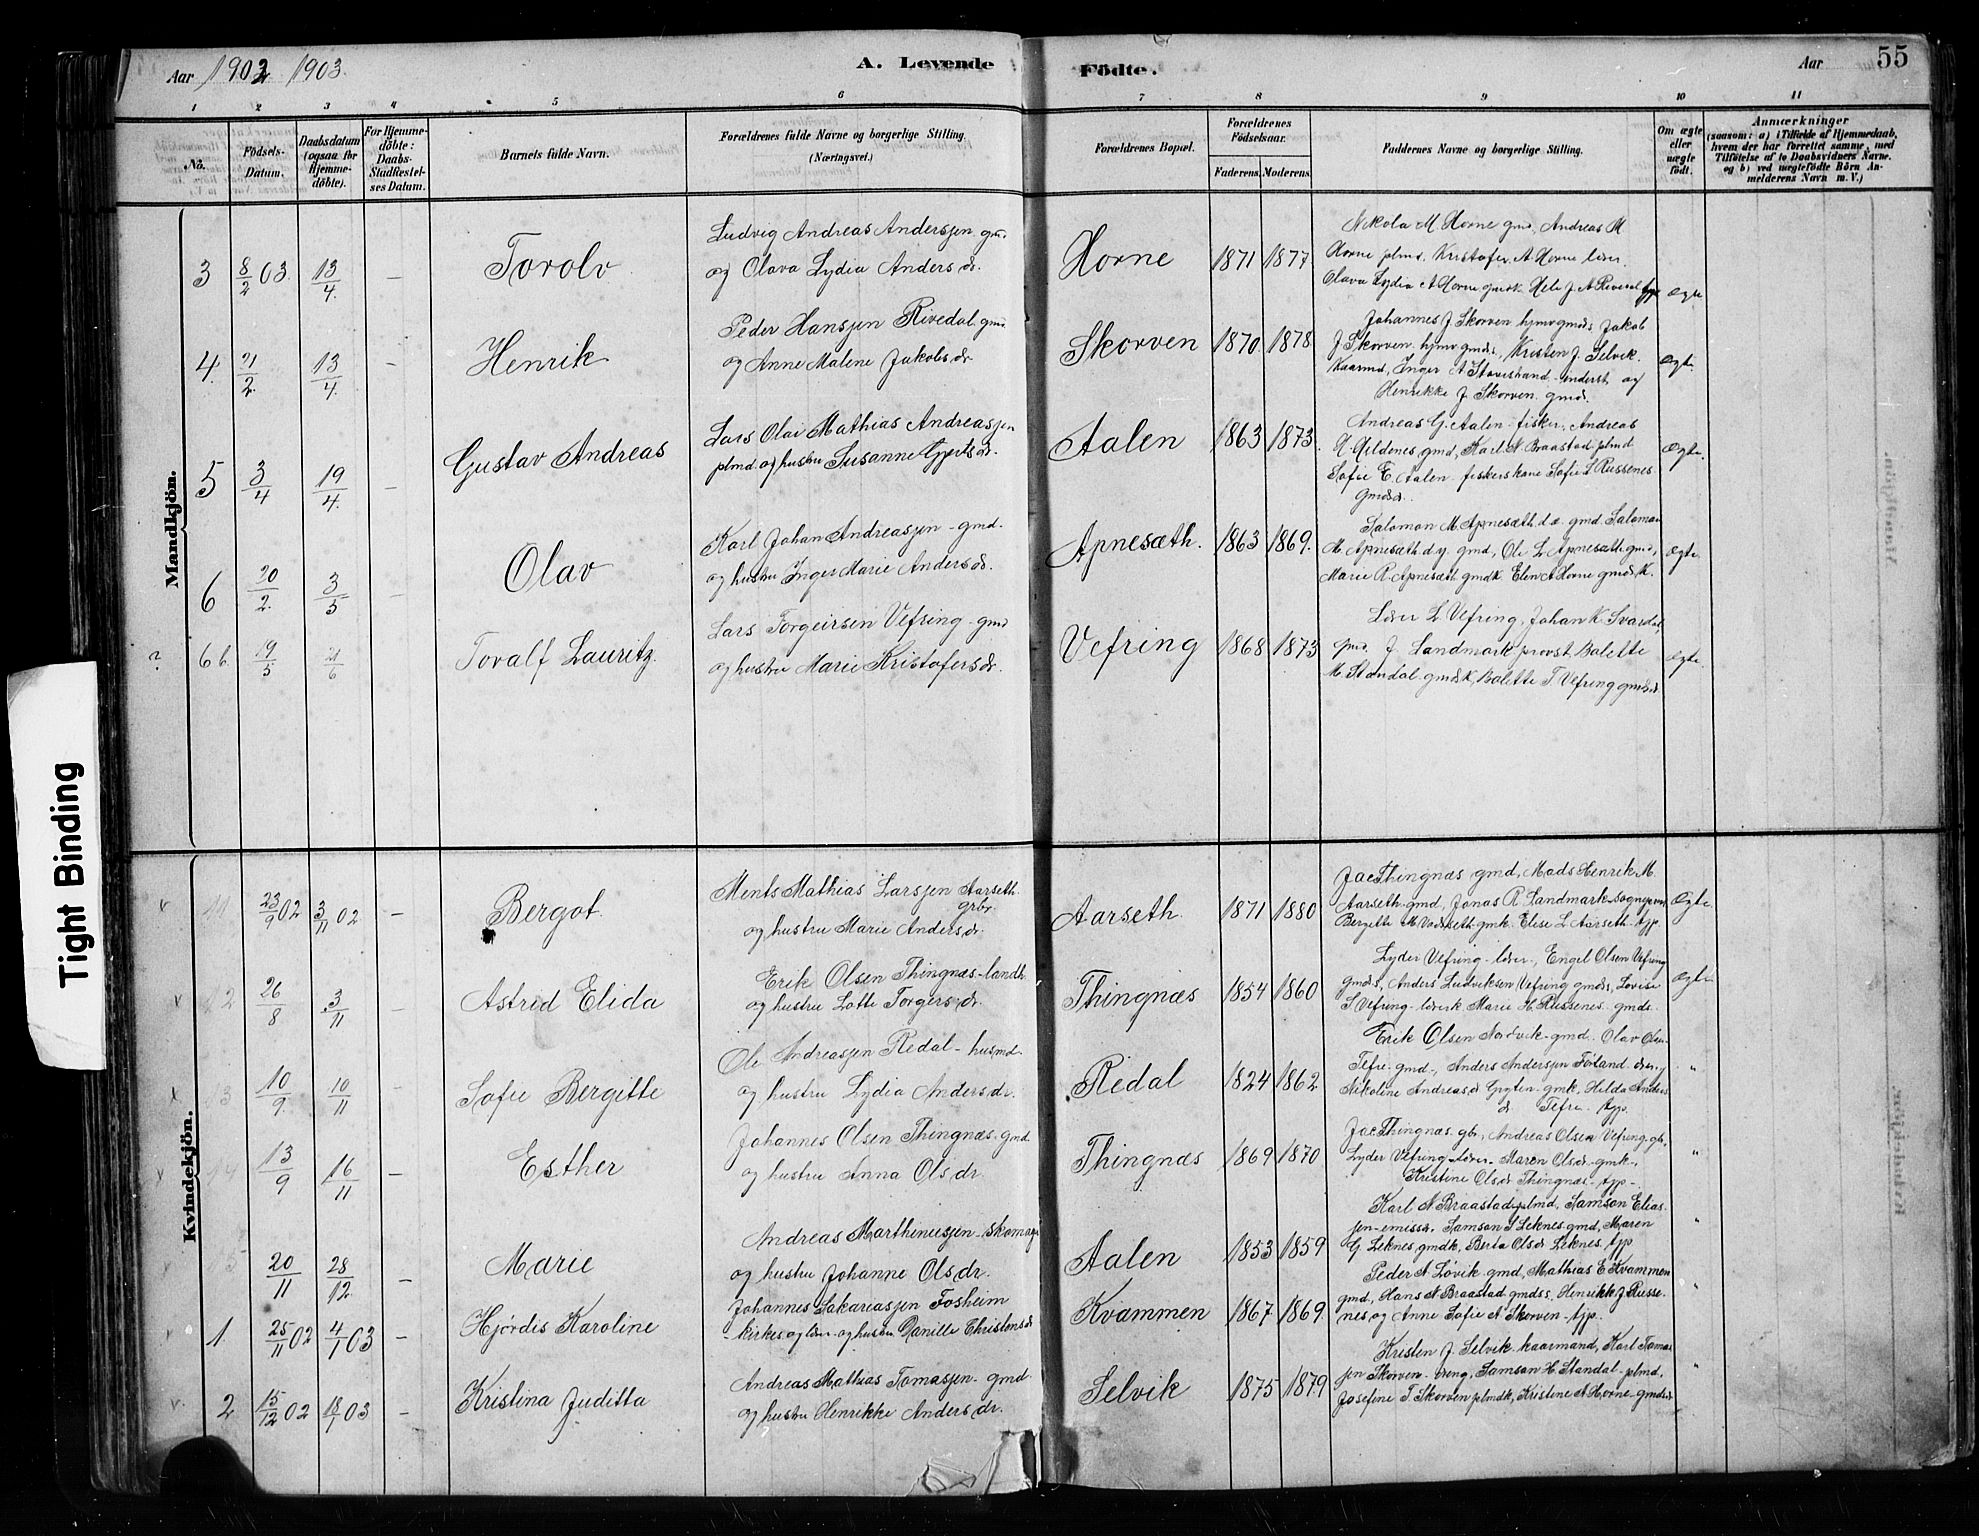 Aar 1902 1903.
A. Levende
Födte.
Aar
55
1 2 3 4 5 6 7 8 9 10 11
No.
Födsels-Datum.
Daabsdatum (ogsaa for Hjemmedöbte).
For Hjemmedöbte: Daabs-Stadfæstelses Datum.
Barnets fulde Navn.
Forældrenes fulde Navne og borgerlige Stilling. (Næringsvei.)
Forældrenes Bopæl.
Forældrenes Födselsaar.
Faderens Moderens
Faddernes Navne og borgerlige Stilling.
Om ægte eller uægte födt.
Anmærkninger
(saasom: a) i Tilfælde af Hjemmedaab, hvem der har forrettet samme, med Tilföielse af to Daabsvidners Navne, og b) ved uægtefödte Börn Anmelderens Navn m. V.)
Mandkjön.
3 8/2 03. 13/4. — Torolv
Ludvig Andreas Andersen gm.
og Olava Lydia Andersdr.
Horne 1871 1877.
Nikola M. Horne gmd, Andreas M
Horne plmd, Kristofer A Horne löser.
Olava Lydia A Horne
ægte
4. 21/2. 13/4. — Henrik
Peder Hansen Rivedal gmd.
og Anne Malene Jakobsdr
Skorven 1870. 1878
Johannes J. Skorven hjmv gmds, Jakob
J Skorven hjmv gmds, Kristen J. Selvik
Kaarmd, Inger A Stavestrand inderst og
Henrikke J. Skorven gmd.
ægte.
5 3/4 19/4. — Gustav Andreas
Lars Olai Mathias Andreasen
plmd. og hustru Susanne Gjertsdr.
Aalen 1863 1873.
Andreas G. Aalen fisker, Andreas
Gildenes gmd, Karl N Braastad plmd
Sofie E. Aalen fiskerskone Sofie L Russenes
gmdsd.
Ægte.
6 20/2. 3/5 — Olav
Karl Johan Andreasen - gmd.
og hustru Inger Marie Andersdr.
Apnesæth. 1863 1869.
Salomon M. Apnesæth d.æ. gmd Salomon
M. Apnesæth d.y. gmd, Ole L Apnesæth gmd,
Marie R. Apnesæth gmdk. Elen A Horne gmdsk.
ægte
? 6 b. 19/5 21/6 Toralf Lauritz.
Lars Torgeirsen Vefring - gmd
og hustru Marie Kristofersdr.
Vefring 1868 1873
Löser L Vefring, Johan K Svardal,
gmd. J. Landmark provst Balette
M. Standal gmdsk, Balette T. Vefring gmdsd
ægte
Kvindekjön.
v 11 23/9 02 3/11 02 — Bergot
Ments Mathias Larsen Aarseth
grbr
og hustru Marie Andersdr.
Aarseth 1871 1880
Jac Thingnæs gmd, Mads Henrik M.
Aarseth gmd, Jonas R Landmark
Bergette M Vadseth gmk. Elise L Aarseth - tjp
Ægte.
v 12 26/8 3/11 — Astrid Elida
Erik Olsen Thingnæs - landh.
og hustru Lotte Torgersdr.
Thingnæs 1854 1860
Lyder Vefring - löser, Engel Olsen Vefring
gmds, Anders Ludviksen Vefring gmds, Lovise
S Vefring Marie H. Russenes gmds
ægte
x 13 10/9. 10/11 — Sofie Bergitte
Ole Andreasen Redal - husmd.
og hustru Lydia Andersdr.
Redal 1824 1862
Erik Olsen Nordvik gmd. Olav Olsen
Tefre gmd., Anders Andersen Förland
Nikoline Andreasd Gryten gmk, Hilda Anders
d. Tefre tjp.
"
x 14 13/9 16/11 — Esther
Johannes Olsen Thingnæs gmd
og hustru Anna Olsdr.
Thingnæs 1869 1870
Jac Thingnæs gb, Andreas Olsen Vefring gb,
Lyder Vefring löser - Maren Olsdr. gmk,
Kristine Olsdr Thingnæs - tjp -
"
5 20/11 28/12. — Marie
Andreas Marthinusen - skomager
og hustru Johanne Olsdr.
Aalen 1853 1859
Karl N Braastad plmd, Samson Elias-
sen emissr, Samson S Leknes gmd, Maren
G Leknes gmdk, Berta Olsdr Leknes tjp
"
v 1. 25/11 02 4/1 03 — Hjördis Karoline
Johannes Sakariasen Fosheim
kirkes. og löser - og hustru Danille Christensdr
Kvammen 1867 1869.
Peder A. Lövik gmd, Mathias E Kvammen
gmd, Hans N Braastad gmdss, Henrikke J Russe
nes og Anne Sofie A Skorven tjp.
"
v. 2 15/12 02 18/1 03 — Kristina Juditta
Andreas Mathias Tomasen gmd
og hustru Henrikke Andersdr.
Selvik 1875 1879
Kristen J. Selvik kaarmand, Karl Tomas
sen Skorven - ung, Samson H Standal - plmd,
Josefine T Skorven plmdk, Kristine A Horne gmdsd
"
Tight Binding